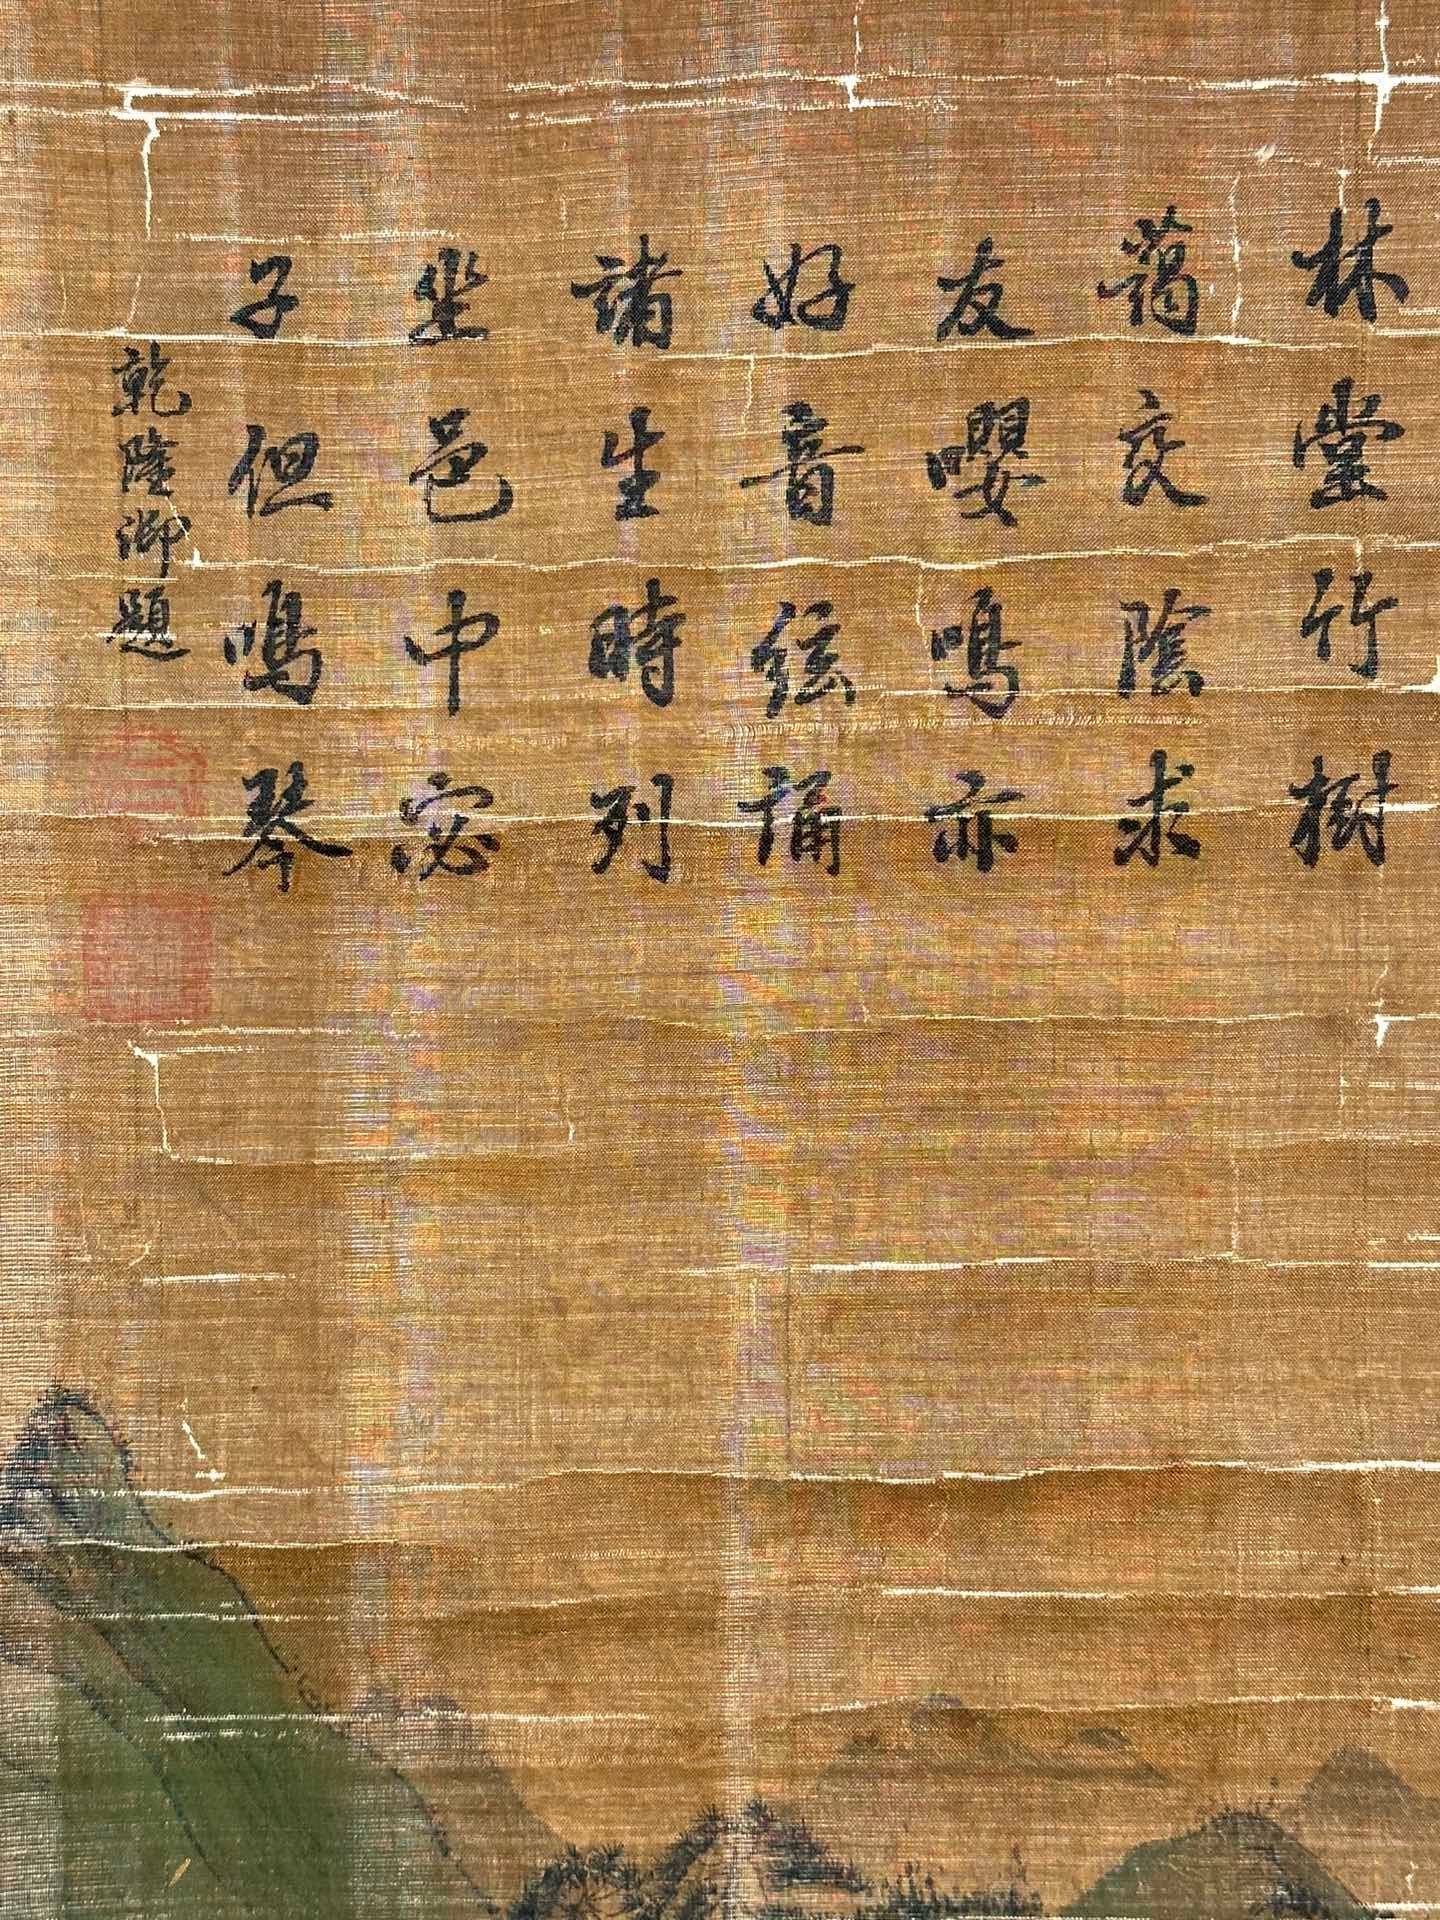 林堂竹樹
藹交陰求
友嚶鳴亦
好音弦誦
諸生時列
坐邑中宓
子但鳴琴
乾隆御題